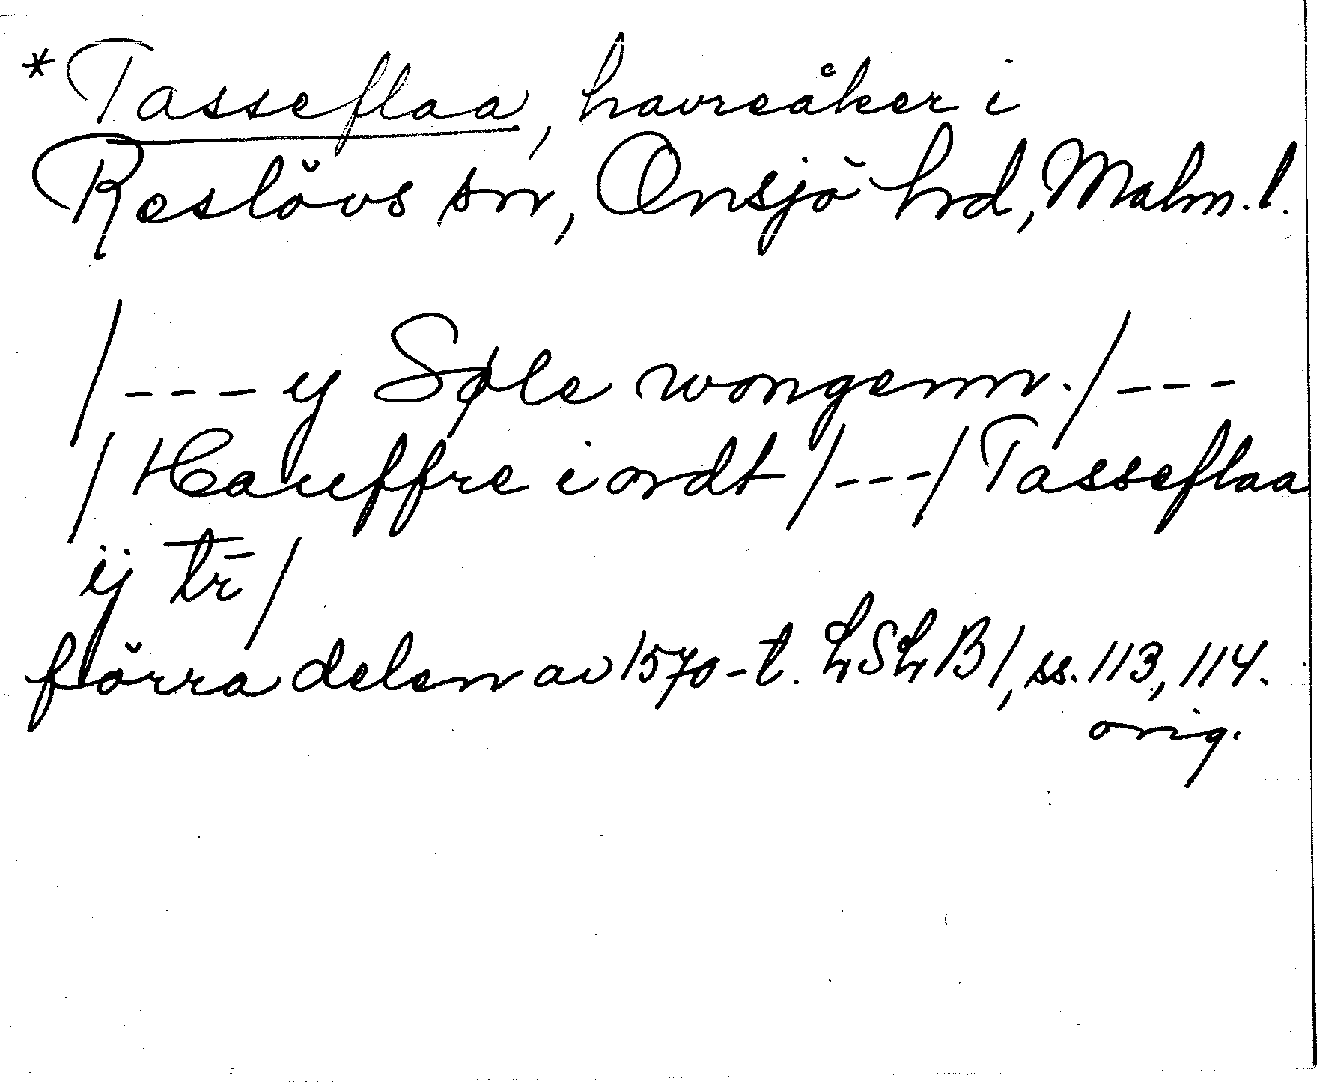 *Tasseflaa, havreåker i
Reslövs sn, Onsjö hd, Malm. l.
/--- y Søle wongenn./---
/Hauffre iordt/---/Tasseflaa
ij tr̄/
förra delen av 1570-t. LSLB1, ss. 113, 114.
orig.